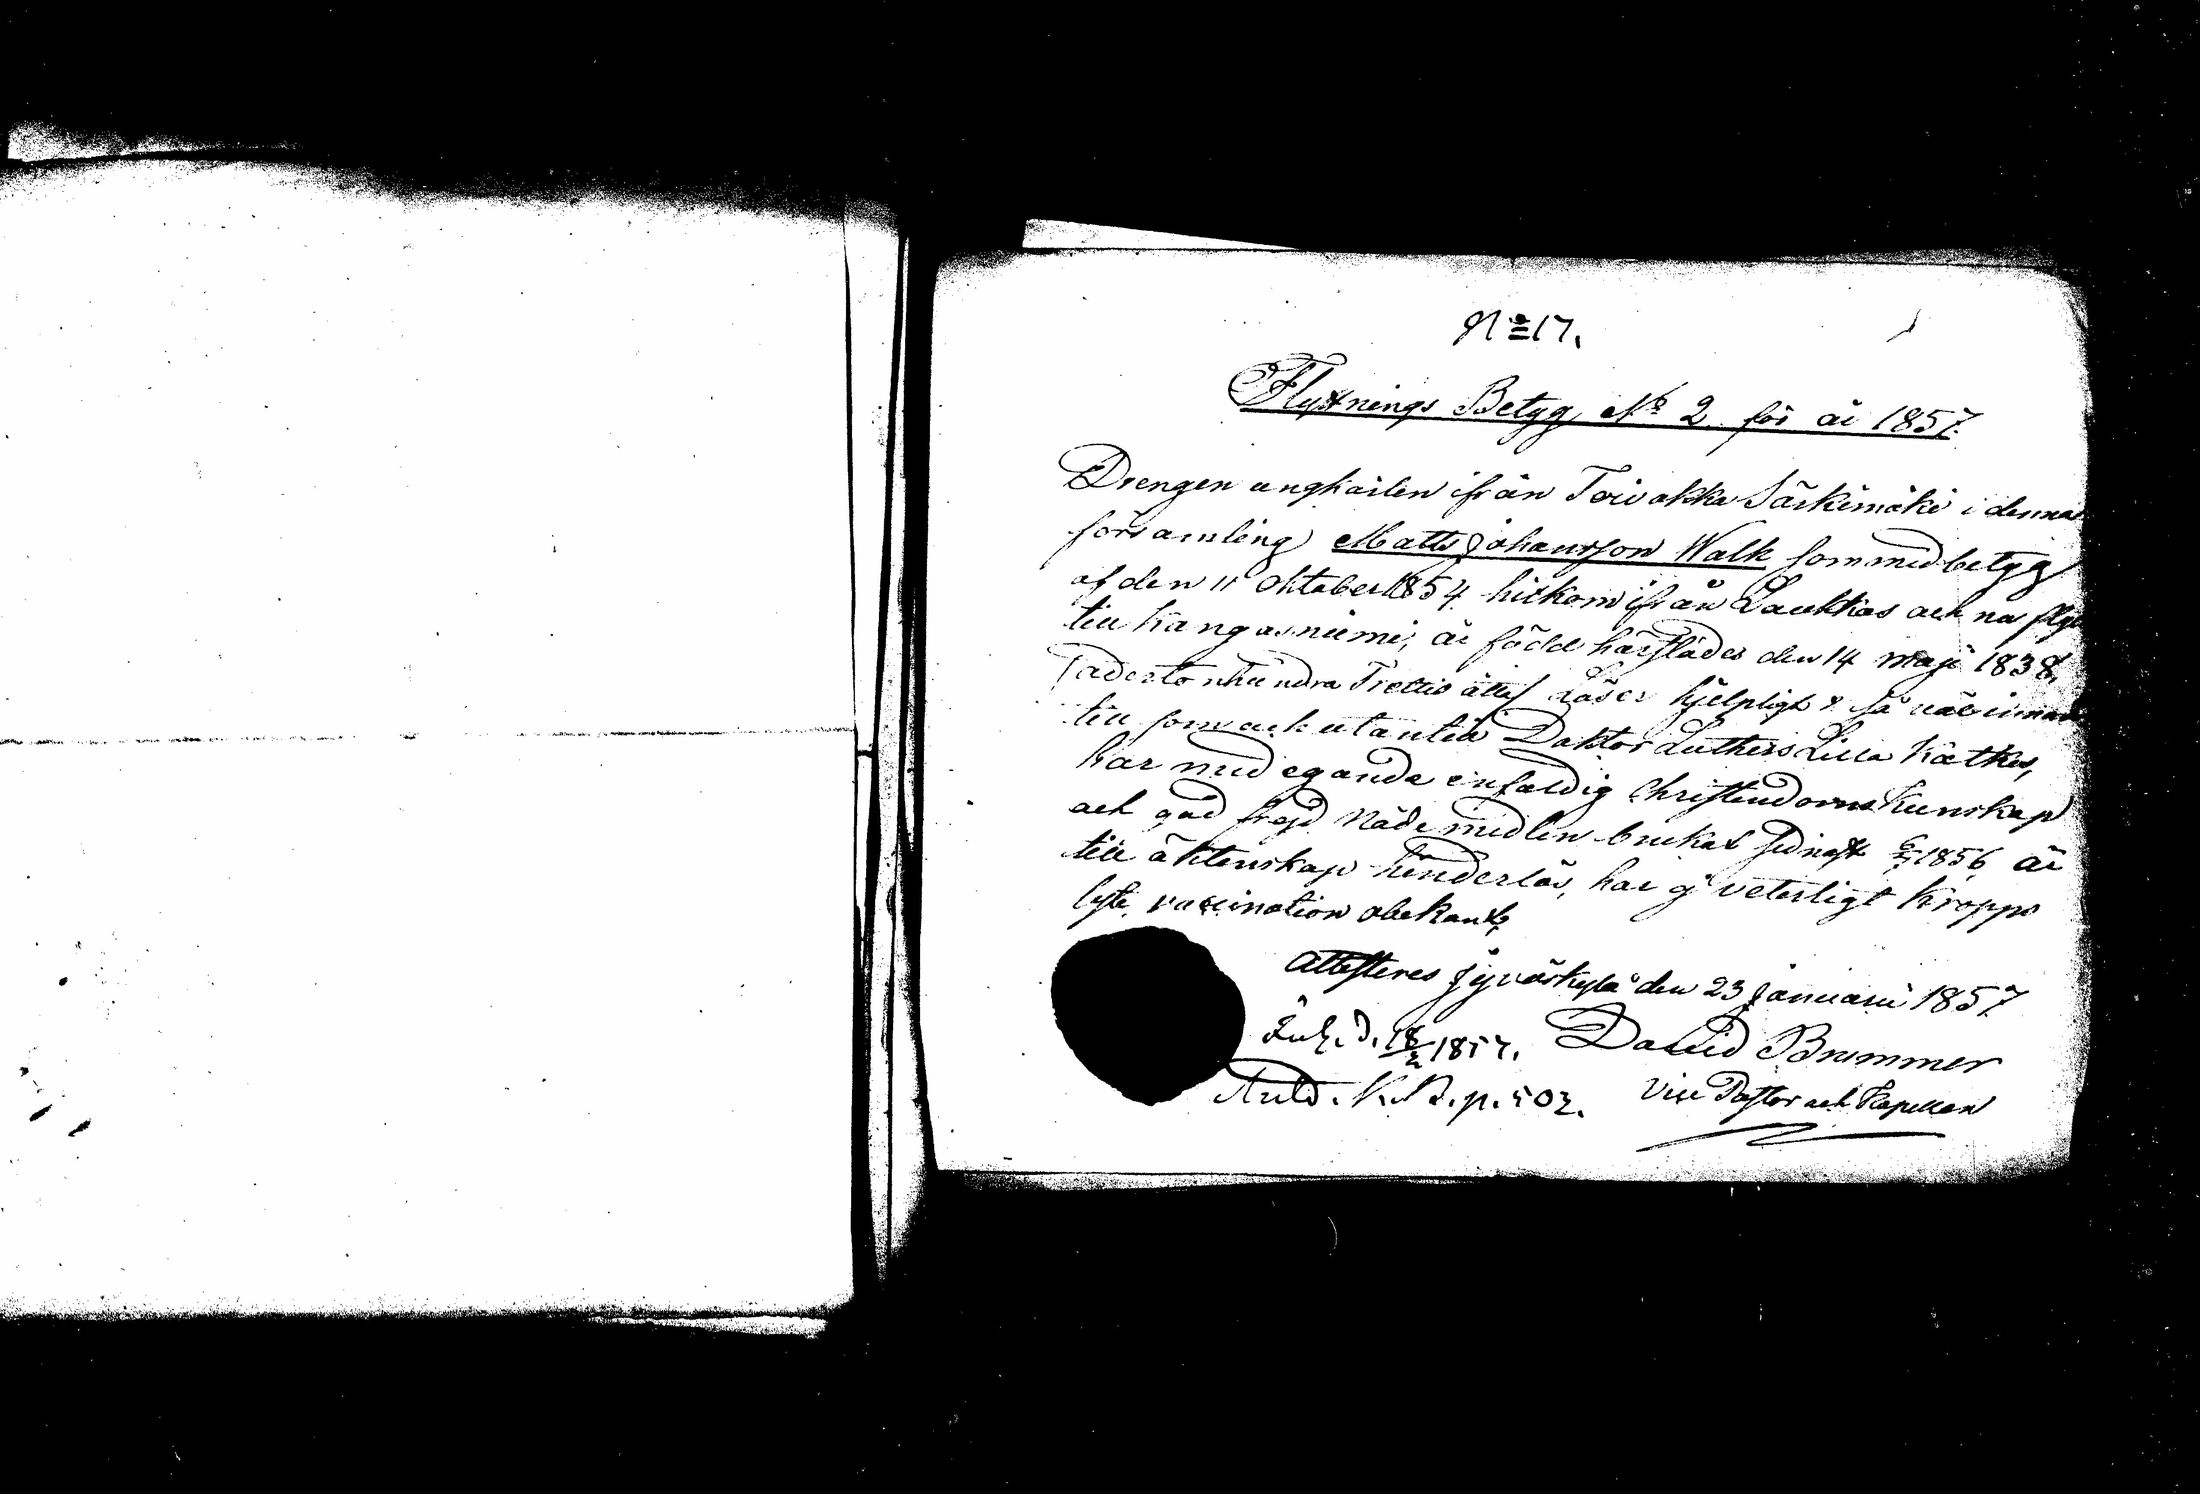 No 17.
Flyttnings Betyg No 2 för år 1857.
Drengen ungkarlen ifrån Toivakka Särkimäki i denna
församling Matts Johansson Walk som med betyg
af den 11 Oktober 1854 hitkom ifrån Laukkas och nu
till Kangasniemi, är född härstädes den 14 maji 1838,
(adertonhundra Trettio åtta) Läser hjelpligt
till som och utantill Doktor Luthers Lilla Katkes,
har med egande enfaldig Christendoms Kunskap
och god frejd Nådemedlen brukat sednast 1856 är
till äktenskap hinderlös, har ej veterligt kropps
lyte, vaccination obekant,
Attesteres Jyväskylä den 23 Januarii 1857
Inl. d. 18/2 1857. David Brummer
K.B. p. 503. Vice Pastor och Kapellan